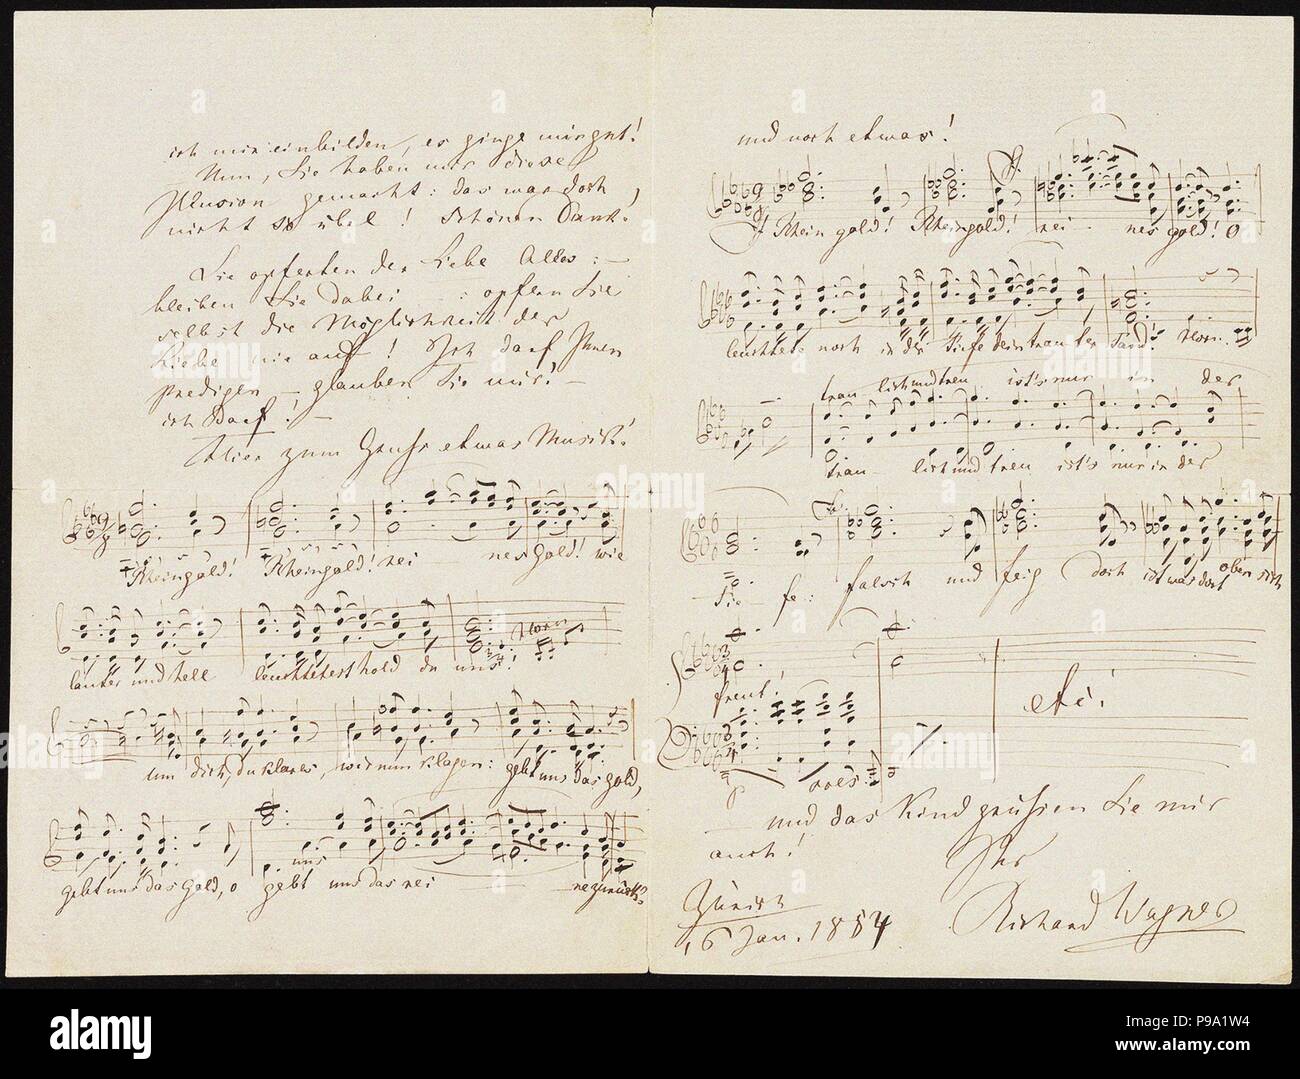 ich mir einbilden, es ginge mir gut!
Nun, Sie haben mir diese
Illusion gemacht: das war doch
nicht so übel! Schönen Dank!
Sie opferten der Liebe Alles: —
bleiben Sie dabei — : opfern Sie
selbst die Möglichkeit der
Liebe nie auf! Ich darf Ihnen
predigen — glauben Sie mir! —
ich darf! —
Hier zum Gruße etwas Musik:
Rheingold! Rheingold! rei - nes gold! wie
lauter und hell leuchtetest hold du uns! Horn
um dich, du klares, wir nun klagen: gebt uns das gold,
gebt uns das gold, o gebt uns das rei - ne zurück!
uns
und noch etwas!
Rheingold! Rheingold! rei - nes gold! O
leuchtete noch in der Tiefe dein laut'rer Tand! Horn.
trau - lich und treu ist's nur in der
trau - lich und treu ist's nur in der
Tie - fe: falsch und feig doch ist was dort oben sich
freut!
p
etc!
— und das Kind grüßen Sie mir
auch!
Ihr
Richard Wagner
Zürich
16 Jan. 1854
alamy
Image ID: P9A1W4
www.alamy.com